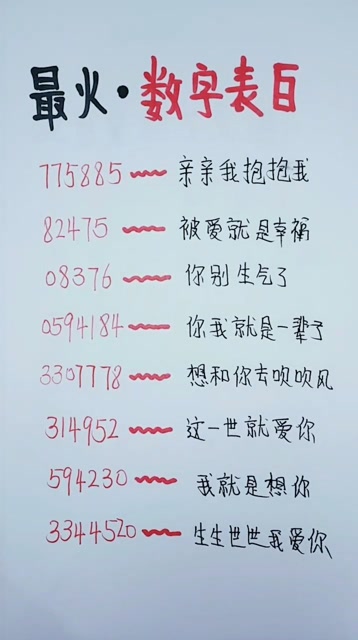 最火·数字表白
775885 亲亲我抱抱我
82475 被爱就是幸福
08376 你别生气了
0594184 你我就是一辈子
3307778 想和你去吹吹风
314952 这一世就爱你
594230 我就是想你
3344520 生生世世我爱你